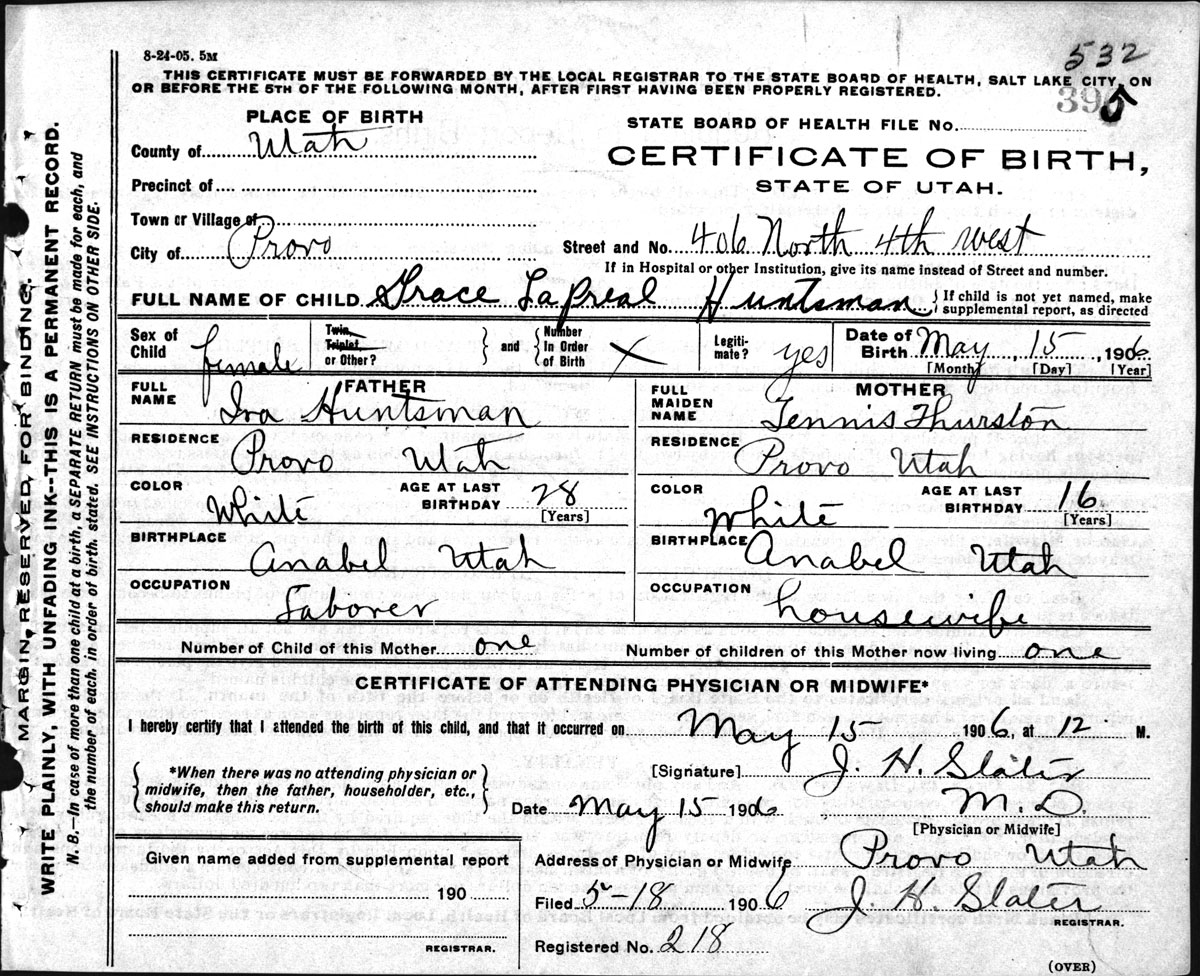 8-24-05. 5M
532
THIS CERTIFICATE MUST BE FORWARDED BY THE LOCAL REGISTRAR TO THE STATE BOARD OF HEALTH, SALT LAKE CITY, ON
OR BEFORE THE 5TH OF THE FOLLOWING MONTH, AFTER FIRST HAVING BEEN PROPERLY REGISTERED.
395
MARGIN RESERVED FOR BINDING.
WRITE PLAINLY, WITH UNFADING INK--THIS IS A PERMANENT RECORD.
N. B.—In case of more than one child at a birth, a SEPARATE RETURN must be made for each, and
the number of each, in order of birth, stated. SEE INSTRUCTIONS ON OTHER SIDE.
PLACE OF BIRTH
County of Utah
Precinct of
Town or Village of
City of Provo
STATE BOARD OF HEALTH FILE No.
CERTIFICATE OF BIRTH,
STATE OF UTAH.
Street and No. 406 North 4th west
If in Hospital or other Institution, give its name instead of Street and number.
FULL NAME OF CHILD Grace LaPreal Huntsman { If child is not yet named, make
supplemental report, as directed
Sex of Child female
Twin, Triplet, or Other? } and { Number In Order of Birth X
Legitimate? yes
Date of Birth May, 15, 1906
[Month] [Day] [Year]
FATHER
FULL NAME Ira Huntsman
RESIDENCE Provo Utah
COLOR White AGE AT LAST BIRTHDAY 28
[Years]
BIRTHPLACE Anabel Utah
OCCUPATION Laborer
MOTHER
FULL MAIDEN NAME Tennis Thurston
RESIDENCE Provo Utah
COLOR White AGE AT LAST BIRTHDAY 16
[Years]
BIRTHPLACE Anabel Utah
OCCUPATION housewife
Number of Child of this Mother one Number of children of this Mother now living one
CERTIFICATE OF ATTENDING PHYSICIAN OR MIDWIFE*
I hereby certify that I attended the birth of this child, and that it occurred on May 15 1906, at 12 M.
{ *When there was no attending physician or
midwife, then the father, householder, etc.,
should make this return. }
[Signature] J. H. Slater
M.D.
Date May 15 1906
[Physician or Midwife]
Given name added from supplemental report
190
REGISTRAR.
Address of Physician or Midwife Provo Utah
Filed 5-18 1906 J. H. Slater
REGISTRAR.
Registered No. 218
(OVER)